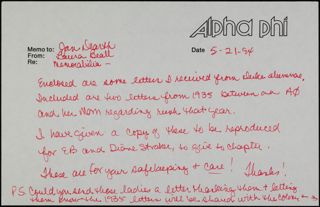 Alpha Phi
Memo to: Jan Dearth
From: Laura Beall
Date 5-21-94
Re: Memorabilia -
Enclosed are some letters I received from Duke alumnae,
Included are two letters from 1935 between an AΦ
and her Mom regarding rush that year.
I have given a copy of these to be reproduced
for EB and Diane to give to chapter.
These are for your safekeeping & care! Thanks!
P.S. Could you send these ladies a letter thanking them & letting
them know the 1935 letters will be shared with the colony